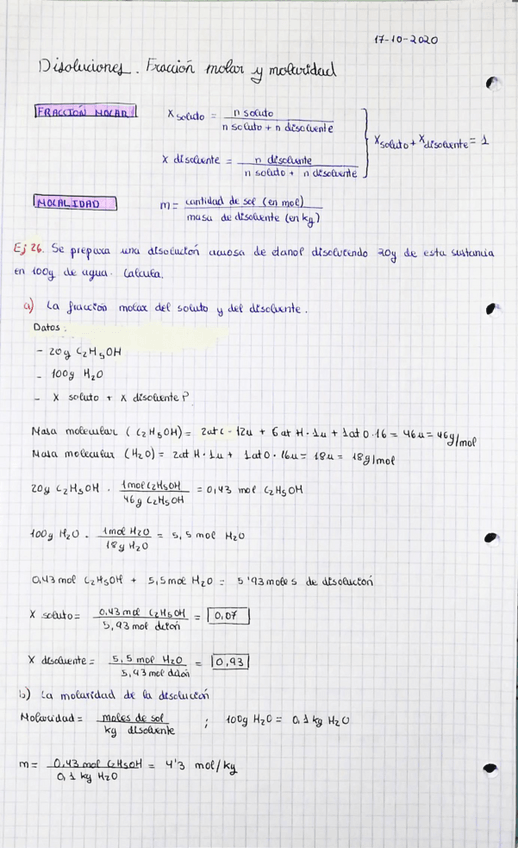 17-10-2020
Disoluciones. Fracción molar y molaridad
FRACCIÓN MOLAR X soluto = n soluto / n soluto + n disolvente
X disolvente = n disolvente / n soluto + n disolvente } X soluto + X disolvente = 1
MOLALIDAD m = cantidad de sol (en mol) / masa de disolvente (en kg)
Ej 26. Se prepara una disolución acuosa de etanol disolviendo 20g de esta sustancia
en 100g de agua. Calcula.
a) La fracción molar del soluto y del disolvente.
Datos:
- 20g C₂H₅OH
- 100g H₂O
- X soluto + X disolvente?
Masa molecular (C₂H₅OH) = 2at C · 12u + 6 at H · 1u + 1at O · 16 = 46u = 46g/mol
Masa molecular (H₂O) = 2at H · 1u + 1at O · 16u = 18u = 18g/mol
20g C₂H₅OH · 1mol C₂H₅OH / 46g C₂H₅OH = 0,43 mol C₂H₅OH
100g H₂O · 1mol H₂O / 18g H₂O = 5,5 mol H₂O
0,43 mol C₂H₅OH + 5,5 mol H₂O = 5'93 moles de disolución
X soluto = 0,43 mol C₂H₅OH / 5,93 mol dción = 0,07
X disolvente = 5,5 mol H₂O / 5,93 mol dción = 0,93
b) La molaridad de la disolución
Molaridad = moles de sol / kg disolvente ; 100g H₂O = 0,1 kg H₂O
m = 0,43 mol C₂H₅OH / 0,1 kg H₂O = 4'3 mol/kg